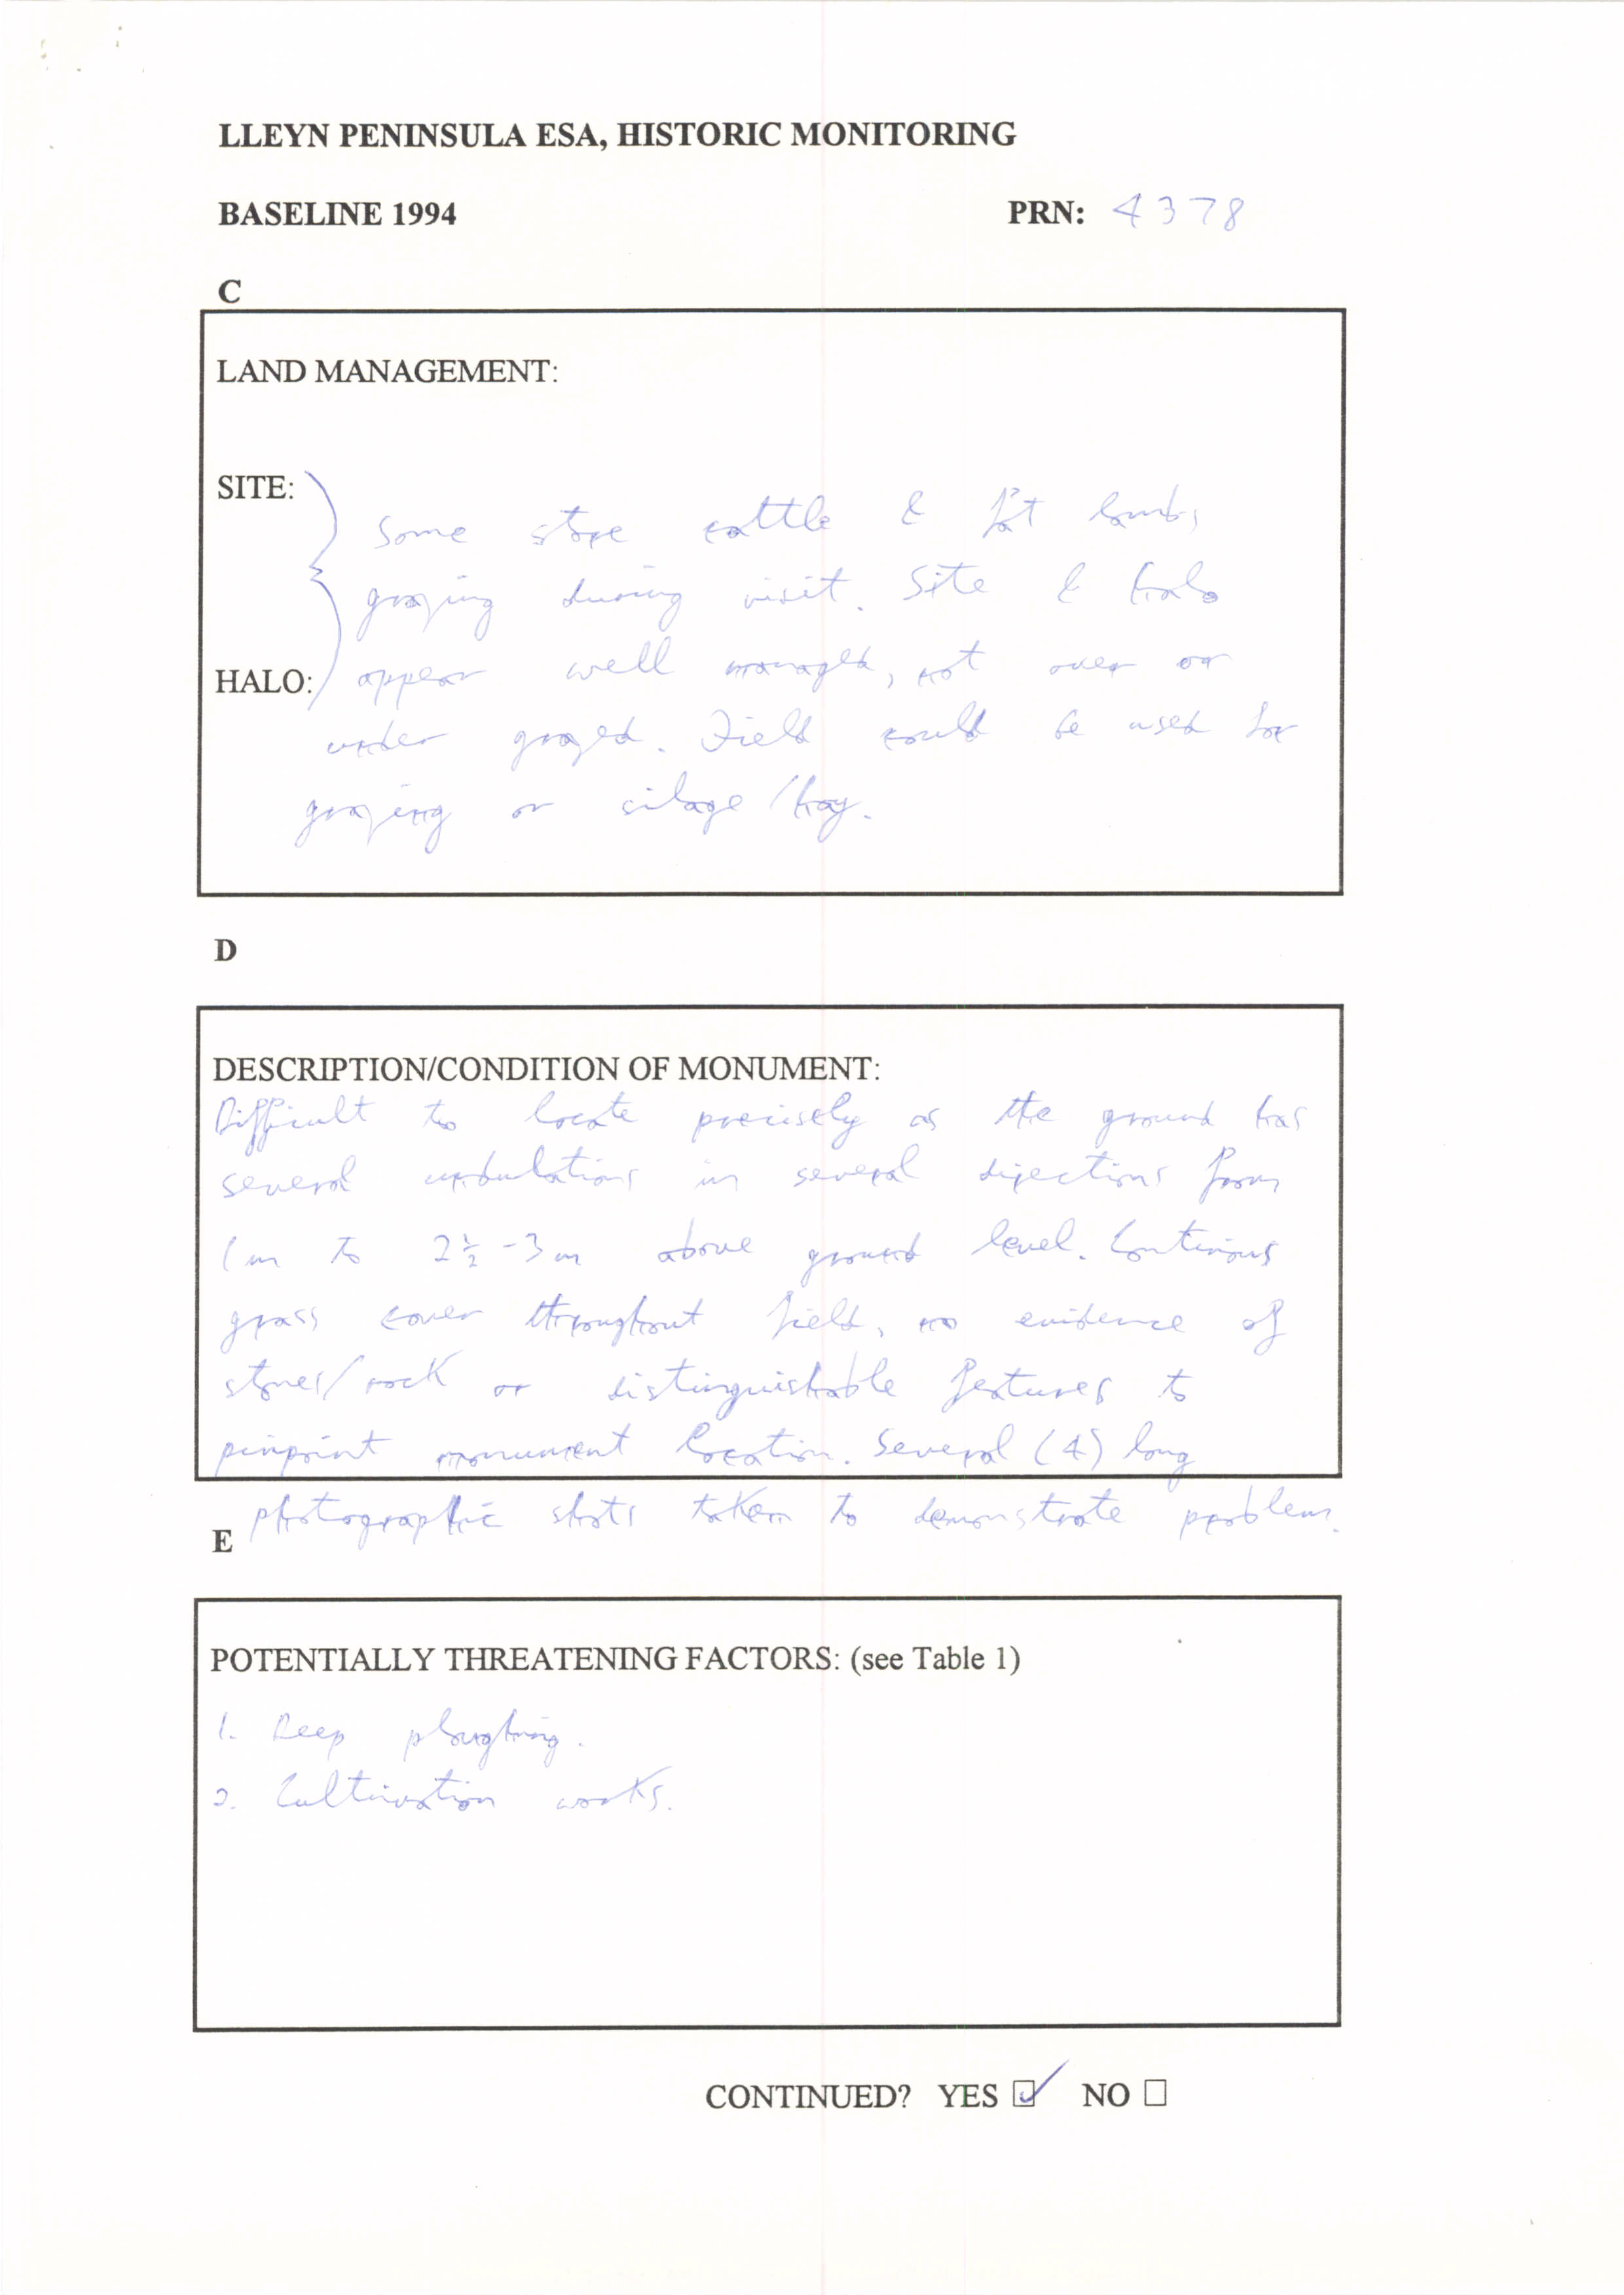 LLEYN PENINSULA ESA, HISTORIC MONITORING
BASELINE 1994 PRN: 4378
C
LAND MANAGEMENT:
SITE:
Some store cattle & fat lambs
grazing during visit. Site & halo
HALO: appear well managed, not over or
under grazed. Field could be used for
grazing or silage/hay.
D
DESCRIPTION/CONDITION OF MONUMENT:
Difficult to locate precisely as the ground has
several undulations in several directions from
1m to 2½-3m above ground level. Continous
grass cover throughout field, no evidence of
stones/rock or distinguishable features to
pinpoint monument location. Several (4) long
photographic shots taken to demonstrate problem.
E
POTENTIALLY THREATENING FACTORS: (see Table 1)
1. Deep ploughing.
2. Cultivation works.
CONTINUED? YES ☑ NO ☐